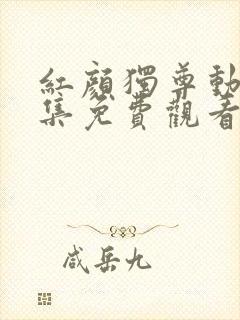 紅顏獨尊動
集免費觀看
咸岳九